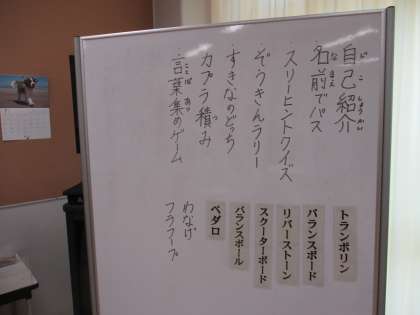 自己紹介
じこしょうかい
名前でパス
なまえ
スリーヒントクイズ
ぞうきんラリー
すきなのどっち
カプラ積み
つ
言葉集めゲーム
ことばあつ
トランポリン
バランスボード
リバーストーン
スクーターボード
バランスボール
ペダロ
わなげ
フラフープ